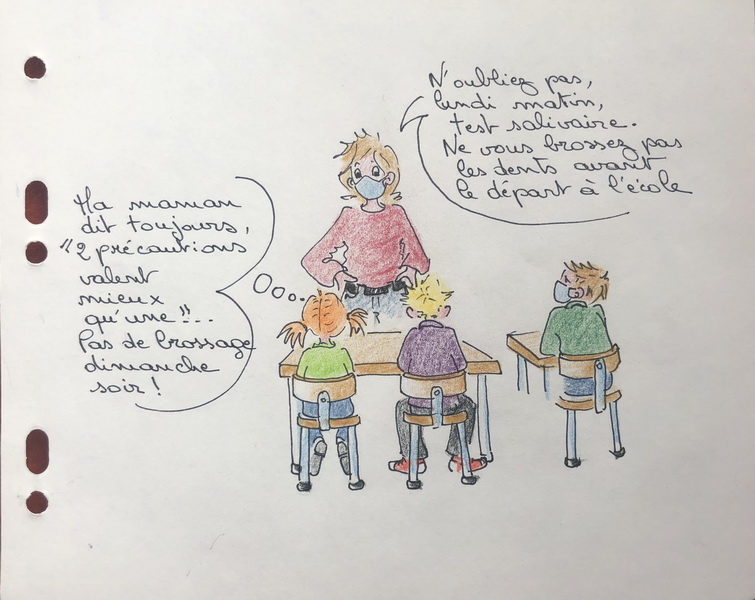 N'oubliez pas,
lundi matin,
test salivaire.
Ne vous brossez pas
les dents avant
le départ à l'école
Ma maman
dit toujours,
"2 précautions
valent
mieux
qu'une"...
Pas de brossage
dimanche
soir !